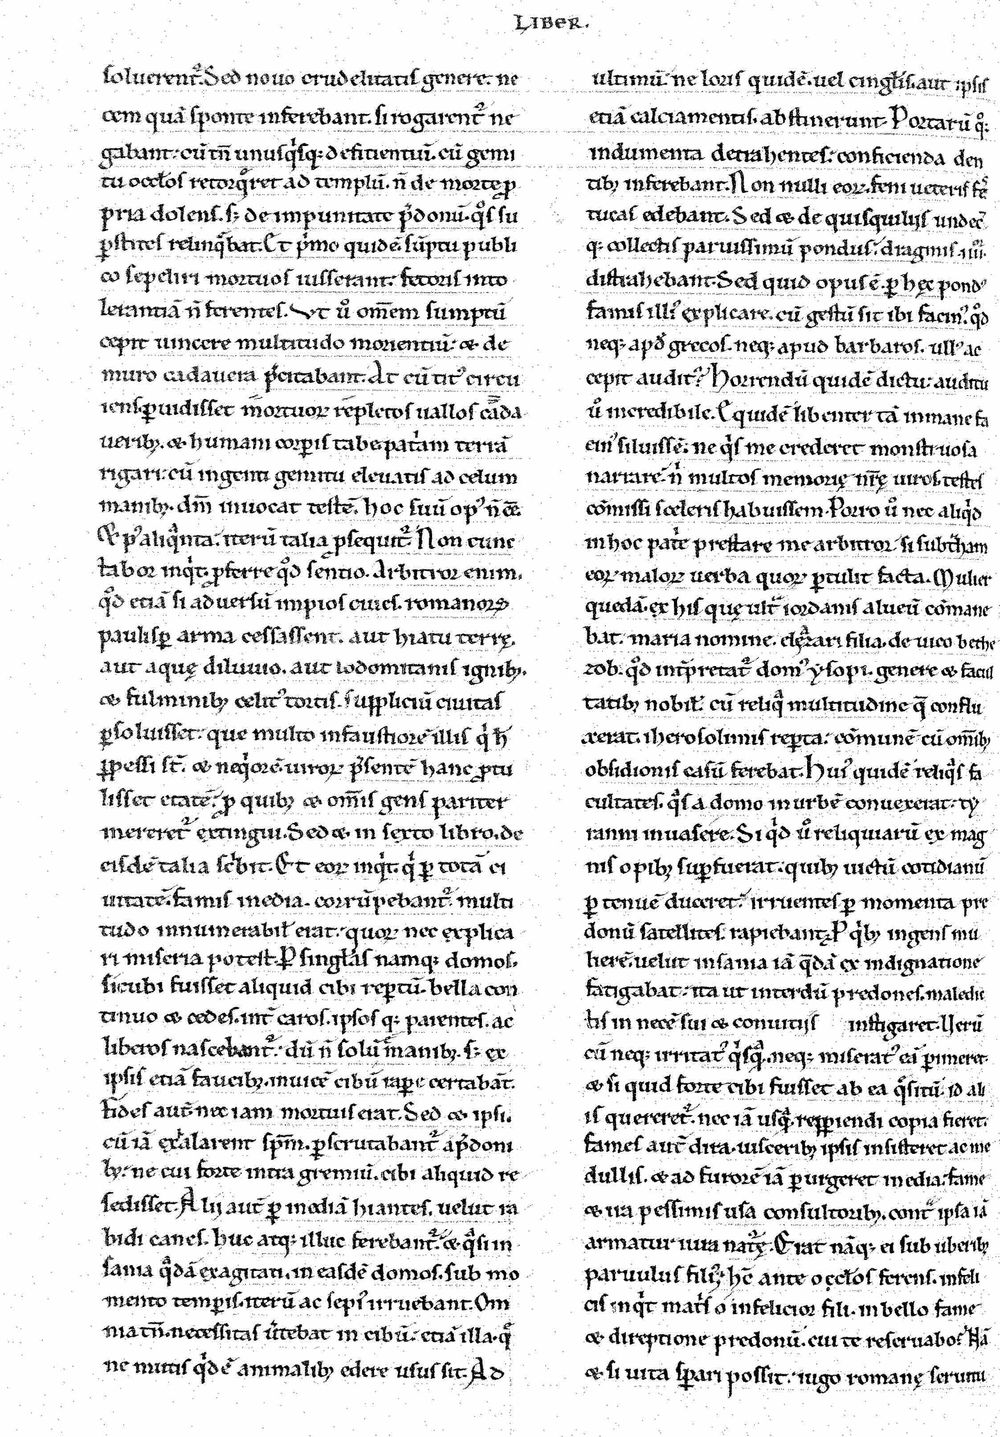 LIBER.
soluerent᷑. Sed nouo crudelitatis genere. ne
cem quā sponte inferebant. si rogarent᷑ ne
gabant. cū tn̄ unusqͥsq; deficientiū. cū gemi
tu oc̄los retorq͛ret ad templū. n̄ de morte ꝓ
pria dolens. s; de impunitate p̄donū. q͛s su
ꝑstites relinq͛bat. Et pͥmo quidē sūptu publi
co sepeliri mortuos iusserant. fetoris into
lerantiā n̄ ferentes. Vt u͛ om̄em sumptū
cepit uincere multitudo morientiū. & de
muro cadauera p̄citabant. At cū tit᷒ circu
iens ꝑuidisset m̄ortuoꝝ repletos uallos cāda
uerib;. & humani corꝑis tabe pat͛am terrā
rigari. cū ingenti gemitu eleuatis ad celum
manib;. dm̄ inuocat testē. hoc suū op᷒ n̄ cē̄.
& p᷒ aliq͛nta. iterū talia ꝓsequit᷑. Non cunc
tabor inq͛t. ꝓferre q͛d sentio. Arbitror enim.
q͛d etiā si aduersū impios ciues. romanoꝝ
paulisꝑ arma cessassent. aut hiatu terrę.
aut aquę diluuio. aut sodomitanis ignib;.
& fulminib; celit᷒ tortis. suppliciū ciuitas
ꝑsoluisset. que multo infaustiorē illis qͥ h̄
ꝑpessi st̄. & neq͛orē uiroꝝ p̄sentē hanc ꝓtu
lisset etatē. ꝓ quib; & om̄is gens pariter
mereret᷑ extingui. Sed & in sexto libro. de
eisdē talia sc̄bit. Et eoꝝ inq͛t. qͥ ꝑ totā ci
uitatē. famis inedia. corrūpebant᷑. multi
tudo innumerabil̄ erat. quoꝝ nec explica
ri miseria potest. Ꝑ singl̄as namq; domos.
sicubi fuisset aliquid cibi reꝑtū. bella con
tinuo & cedes. int̄ caros. ipsos q; parentes. ac
liberos nascebant᷑. dū n̄ solū manib;. s; ex
ipsis etiā faucib;. inuicē cibū raꝑe certabāt.
Fides aut̄ nec iam mortuis erat. Sed & ipsi.
cū iā exalarent spm̄. ꝑscrutabant᷑ a p̄doni
b;. ne cui forte intra gremiū. cibi aliquid re
sedisset. Alij aut̄ ꝑ inediā hiantes. uelut ra
bidi canes. huc atq; illuc ferebant᷑. & q͛si in
sania q͛dā exagitati. in easdē domos. sub mo
mento temꝑis. iterū ac sepi᷒ irruebant. Om
nia tn̄. necessitas u̅tebat in cibū. etiā illa. q͛
ne mutis q͛dē animalib; edere usus sit. Ad
ultimū. ne loris quidē. uel cingl̄is. aut ipsis
etiā calciamentis. abstinerunt. Portarū q;
indumenta detrahentes. conficienda den
tib; inferebant. Non nulli eoꝝ. feni ueteris fe
tucas edebant. Sed & de quisquilijs undec̄
q; collectis paruissimū pondus. dragmis .iiii.
distrahebant. Sed quid opus ē. ꝑ hęc pond᷒
famis illi᷒ explicare. cū gestū sit ibi facin᷒. q͛d
neq; apd̄ grecos. neq; apud barbaros. ull᷒ ac
cepit audit᷒? Horrendū quidē dictu. auditu
u͛ incredibile. Equidē libenter tā inmane fa
cin᷒ siluissē. ne q͛s me crederet monstruosa
narrare. nͥ multos memorię nr̄ę uiros testes
cōmissi sceleris habuissem. Porro u͛ nec aliq͛d
in hoc patͥe prestare me arbitror. si subt͛ham
eoꝝ maloꝝ uerba quoꝝ ꝑtulit facta. Mulier
quedā. ex his quę ult͛ iordanis alueū cōmane
bat. maria nomine. eleazari filia. de uico bethe
zob. q͛d int̄pretat᷑ dom᷒ ysopi. genere & facul
tatib; nobil̄. cū reliq͛ multitudine q̄ conflu
xerat. iherosolimis reꝑta. cōmunē cū om̄ib;
obsidionis casū ferebat. Hui᷒ quidē reliq͛s fa
cultates. q͛s a domo in urbē conuexerat. ty
ranni inuasere. Si q͛d u͛ reliquiarū ex mag
nis opib; suꝑfuerat. quib; uictū cotidianū
ꝑ tenuē duceret. irruentes ꝑ momenta pre
donū satellites. rapiebant. Ꝑ q͛b; ingens mu
lierē. uelut insania iā q̄dā ex indignatione
fatigabat. ita ut interdū predones. maledic
tis in necē sui & conuitijs instigaret. Uerū
cū neq; irritat᷒ q͛sq͛. neq; miserat᷒ eā ꝑimeret.
& si quid forte cibi fuisset ab ea q͛sitū. id ali
is quereret᷑. nec iā usq͛ reꝑpiendi copia fieret.
fames aut̄ dira. uiscerib; ipsis insisteret ac me
dullis. & ad furorē iā ꝑurgeret inedia. fame
& ira pessimis usa consultorib;. cont͛ ipsa iā
armatur iura nat͛ę. Erat nāq; ei sub uberib;
paruulus fili᷒. hc̄ ante oc̄los ferens. infeli
cis inq͛t mat͛s o infelicior fili. in bello fame
& direptione predonū. cui te reseruabo? Nā
& si uita sꝑari possit. iugo romanę seruitu